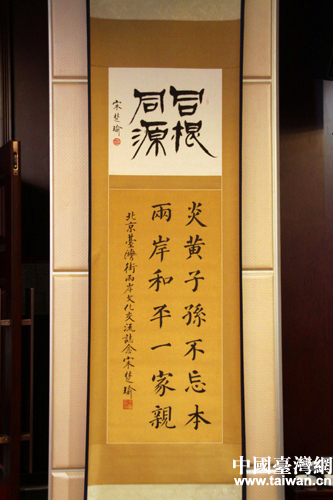 同根
同源
宋楚瑜
炎黄子孫不忘本
兩岸和平一家親
北京臺灣街兩岸文化交流誌念宋楚瑜
中國臺灣網
www.taiwan.cn